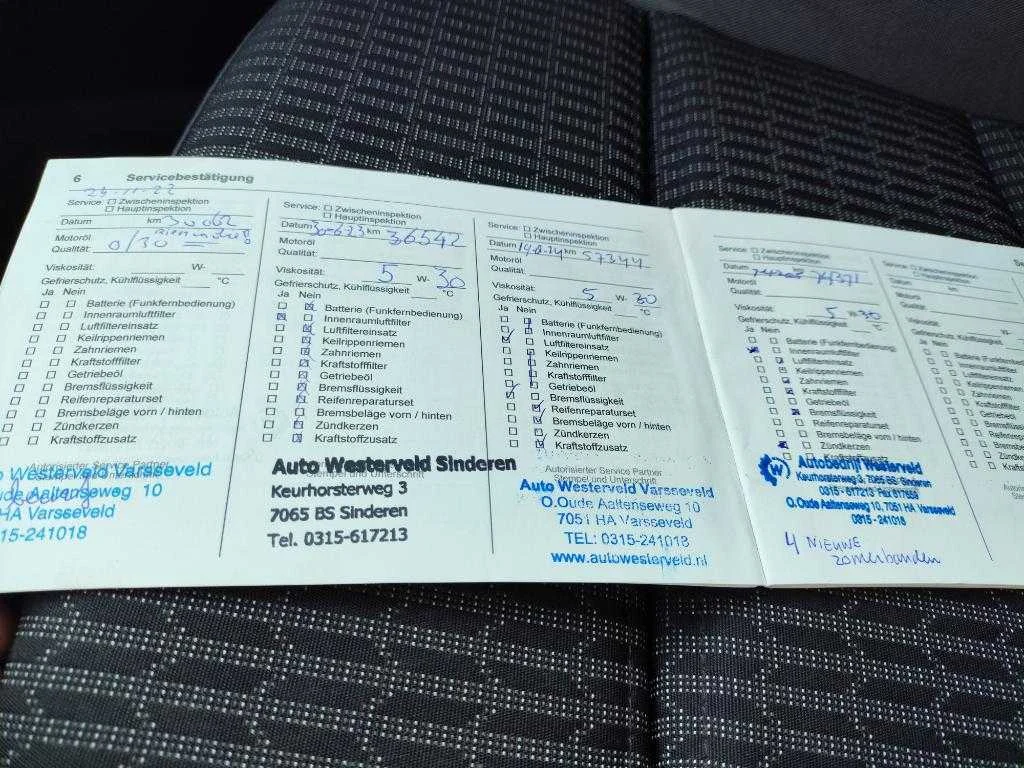 6 Servicebestätigung
Service: Zwischeninspektion
Hauptinspektion
Datum km
Motoröl
Qualität: 0/30
Viskosität: W-
Gefrierschutz, Kühlflüssigkeit °C
Ja Nein
Batterie (Funkfernbedienung)
Innenraumluftfilter
Luftfiltereinsatz
Keilrippenriemen
Zahnriemen
Kraftstofffilter
Getriebeöl
Bremsflüssigkeit
Reifenreparaturset
Bremsbeläge vorn / hinten
Zündkerzen
Kraftstoffzusatz
Westerveld Varsseveld
Aaltenseweg 10
HA Varsseveld
15-241018
Service: Zwischeninspektion
Hauptinspektion
Datum km 36542
Motoröl
Qualität:
Viskosität: 5 W- 30
Gefrierschutz, Kühlflüssigkeit °C
Ja Nein
Batterie (Funkfernbedienung)
Innenraumluftfilter
Luftfiltereinsatz
Keilrippenriemen
Zahnriemen
Kraftstofffilter
Getriebeöl
Bremsflüssigkeit
Reifenreparaturset
Bremsbeläge vorn / hinten
Zündkerzen
Kraftstoffzusatz
Auto Westerveld Sinderen
Keurhorsterweg 3
7065 BS Sinderen
Tel. 0315-617213
Service: Zwischeninspektion
Hauptinspektion
Datum km 57344
Motoröl
Qualität:
Viskosität: 5 W- 30
Gefrierschutz, Kühlflüssigkeit °C
Ja Nein
Batterie (Funkfernbedienung)
Innenraumluftfilter
Luftfiltereinsatz
Keilrippenriemen
Zahnriemen
Kraftstofffilter
Getriebeöl
Bremsflüssigkeit
Reifenreparaturset
Bremsbeläge vorn / hinten
Zündkerzen
Kraftstoffzusatz
Autorisierter Service Partner
Stempel und Unterschrift
Auto Westerveld Varsseveld
O.Oude Aaltenseweg 10
7051 HA Varsseveld
TEL: 0315-241018
www.autowesterveld.nl
Service: Zwischeninspektion
Hauptinspektion
Datum
Motoröl
Qualität:
Viskosität: 5 W- 30
Gefrierschutz, Kühlflüssigkeit °C
Ja Nein
Batterie (Funkfernbedienung)
Innenraumluftfilter
Luftfiltereinsatz
Keilrippenriemen
Zahnriemen
Kraftstofffilter
Getriebeöl
Bremsflüssigkeit
Reifenreparaturset
Bremsbeläge vorn / hinten
Zündkerzen
Autobedrijf Westerveld
Keurhorsterweg 3, 7065 BS Sinderen
0315 - 617213
O.Oude Aaltenseweg 10, 7051 HA Varsseveld
0315 - 241018
4 NIEUWE
zomerbanden
Service: Zwischeninspektion
Hauptinspektion
Datum
Motoröl
Qualität:
Viskosität:
Gefrierschutz, Kühlflüssigkeit
Ja Nein